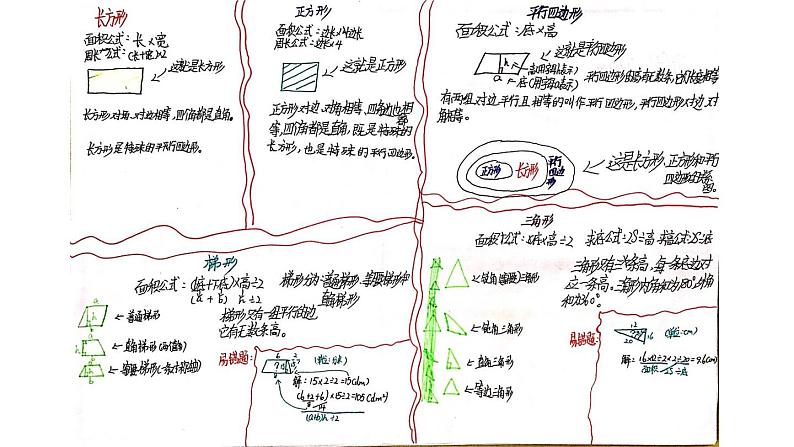 长方形
面积公式:长×宽
周长公式:(长+宽)×2
这就是长方形
长方形对角、对边相等,四个角都是直角。
长方形是特殊的平行四边形。
正方形
面积公式:边长×边长
周长公式:边长×4
这就是正方形
正方形对边、对角相等,四角边也相
等,四个角都是直角,既是特殊的
长方形,也是特殊的平行四边形。
平行四边形
面积公式:底×高
这就是平行四边形
h
a
有两组对边平行且相等的叫作平行四边形,平行四边形对边、对
角相等。
正方形
长方形
平行四边形
这是长方形,正方形和平行
梯形
面积公式:(上底+下底)×高÷2
(a + b) h ÷2
梯形分为:普通梯形、等腰梯形和
直角梯形
梯形只有一组平行的边,
它有无数条高。
a
h
b
普通梯形
直角梯形
等腰梯形
易错题:
6
解:15×2÷2=15(dm)
×15÷2=105(dm²)
14
(a+b)h÷2
三角形
面积公式:底×高÷2
求底公式:2S÷高
求高公式:2S÷底
三角形有三条高,每一条边对
立一条高。三角形内角和为180°,外角
和为360°。
锐角三角形
钝角三角形
直角三角形
等边三角形
易错题:
12
16
20
(单位:cm)
解:16×12÷2×2÷20=9.6(cm)